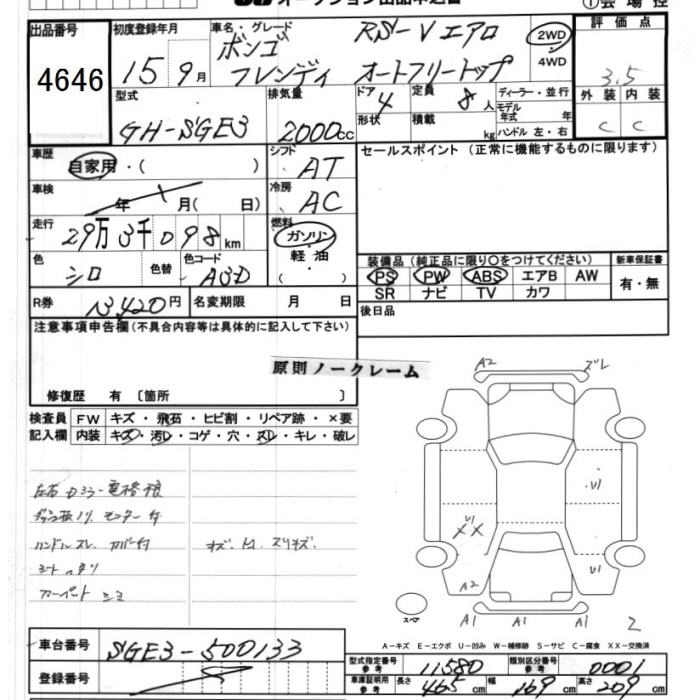 ①会場控
出品番号 初度登録年月 車名・グレード 評価点
4646 15年 9月 ボンゴ フレンディ RS-Vエアロ オートフリートップ 2WD 4WD 3.5
外装 内装
C C
型式 排気量 ドア 4 定員 8人 ディーラー・並行
GH-SGE3 2000cc 形状 積載 kg モデル年式 年
ハンドル 左・右
車歴 シフト セールスポイント (正常に機能するものに限ります)
自家用・( ) AT
車検 冷房
年 月( 日) AC
走行 燃料
29万3千098km ガソリン・軽油・( )
色 色替 色コード
シロ A3D
装備品 (純正品に限り○をつけてください) 新車保証書
PS PW ABS エアB AW 有・無
SR ナビ TV カワ
R券 13,420円 名変期限 月 日 後日品
注意事項申告欄(不具合内容等は具体的に記入して下さい)
原則ノークレーム
修復歴 有 〔箇所 〕
検査員 FW キズ・飛石・ヒビ割・リペア跡・×要
記入欄 内装 キズ・汚レ・コゲ・穴・スレ・キレ・破レ
A2 ズレ
U1
U1 XX U1
A2
左右Dミラー電格
モニター付
ハンドルスレ カバー付
スリキズ
カーペット
スペア A1 A1 A1 2
A−キズ E−エクボ U−凹み W−補修跡 S−サビ C−腐食 XX−交換済
車台番号 SGE3-500133
登録番号
型式指定番号 参考 11580 類別区分番号 参考 0001
車庫証明用 参考 長さ 465cm 幅 169cm 高さ 209cm